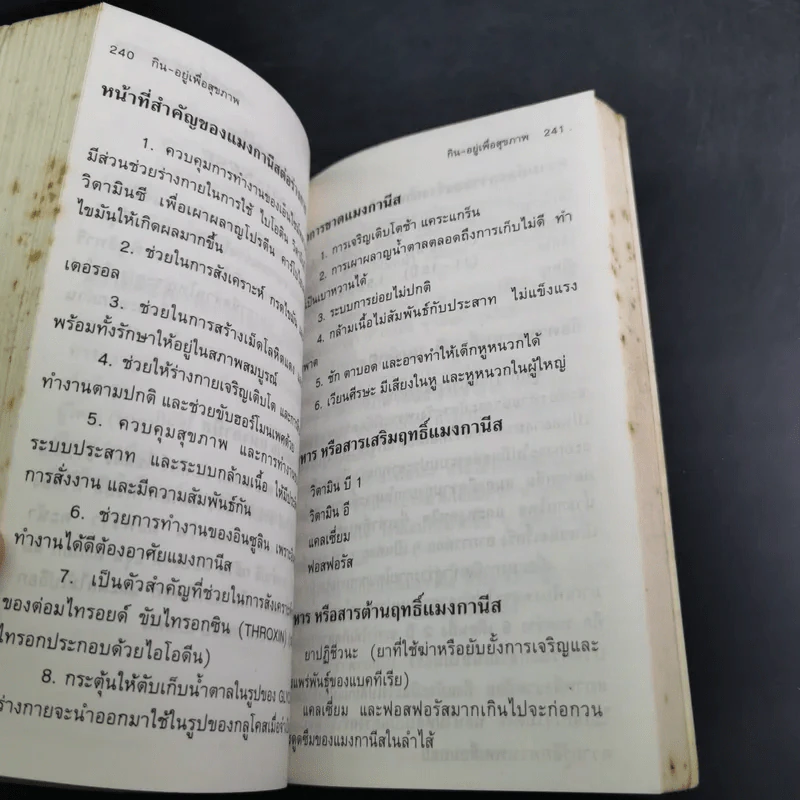 240 กิน-อยู่เพื่อสุขภาพ
หน้าที่สำคัญของแมงกานีสต่อร่าง
1. ควบคุมการทำงานของเอ็นไซม์
มีส่วนช่วยร่างกายในการใช้ ไบโอติน
วิตามินซี เพื่อเผาผลาญโปรตีน คาร์โบ
ไขมันให้เกิดผลมากขึ้น
2. ช่วยในการสังเคราะห์ กรดไขมัน
เตอรอล
3. ช่วยในการสร้างเม็ดโลหิตแดง
พร้อมทั้งรักษาให้อยู่ในสภาพสมบูรณ์
4. ช่วยให้ร่างกายเจริญเติบโต
ทำงานตามปกติ และช่วยขับฮอร์โมนเพศด้วย
5. ควบคุมสุขภาพ และการทำงาน
ระบบประสาท และระบบกล้ามเนื้อ
การสั่งงาน และมีความสัมพันธ์กัน
6. ช่วยการทำงานของอินซูลิน เพราะ
ทำงานได้ดีต้องอาศัยแมงกานีส
7. เป็นตัวสำคัญที่ช่วยในการสังเคราะห์
ของต่อมไทรอยด์ ขับไทรอกซิน (THROXIN)
ไทรอกประกอบด้วยไอโอดีน)
8. กระตุ้นให้ตับเก็บน้ำตาลในรูปของ
ร่างกายจะนำออกมาใช้ในรูปของกลูโคสเมื่อ
กิน-อยู่เพื่อสุขภาพ 241
การขาดแมงกานีส
1. การเจริญเติบโตช้า แคระแกร็น
2. การเผาผลาญน้ำตาลตลอดถึงการเก็บไม่ดี ทำ
เป็นเบาหวานได้
3. ระบบการย่อยไม่ปกติ
4. กล้ามเนื้อไม่สัมพันธ์กับประสาท ไม่แข็งแรง
พาต
5. ชัก ตาบอด และอาจทำให้เด็กหูหนวกได้
6. เวียนศีรษะ มีเสียงในหู และหูหนวกในผู้ใหญ่
หาร หรือสารเสริมฤทธิ์แมงกานีส
วิตามิน บี 1
วิตามิน อี
แคลเซี่ยม
ฟอสฟอรัส
หาร หรือสารต้านฤทธิ์แมงกานีส
ยาปฏิชีวนะ (ยาที่ใช้ฆ่าหรือยับยั้งการเจริญและ
แพร่พันธุ์ของแบคทีเรีย)
แคลเซี่ยม และฟอสฟอรัสมากเกินไปจะก่อกวน
ดูดซึมของแมงกานีสในลำไส้